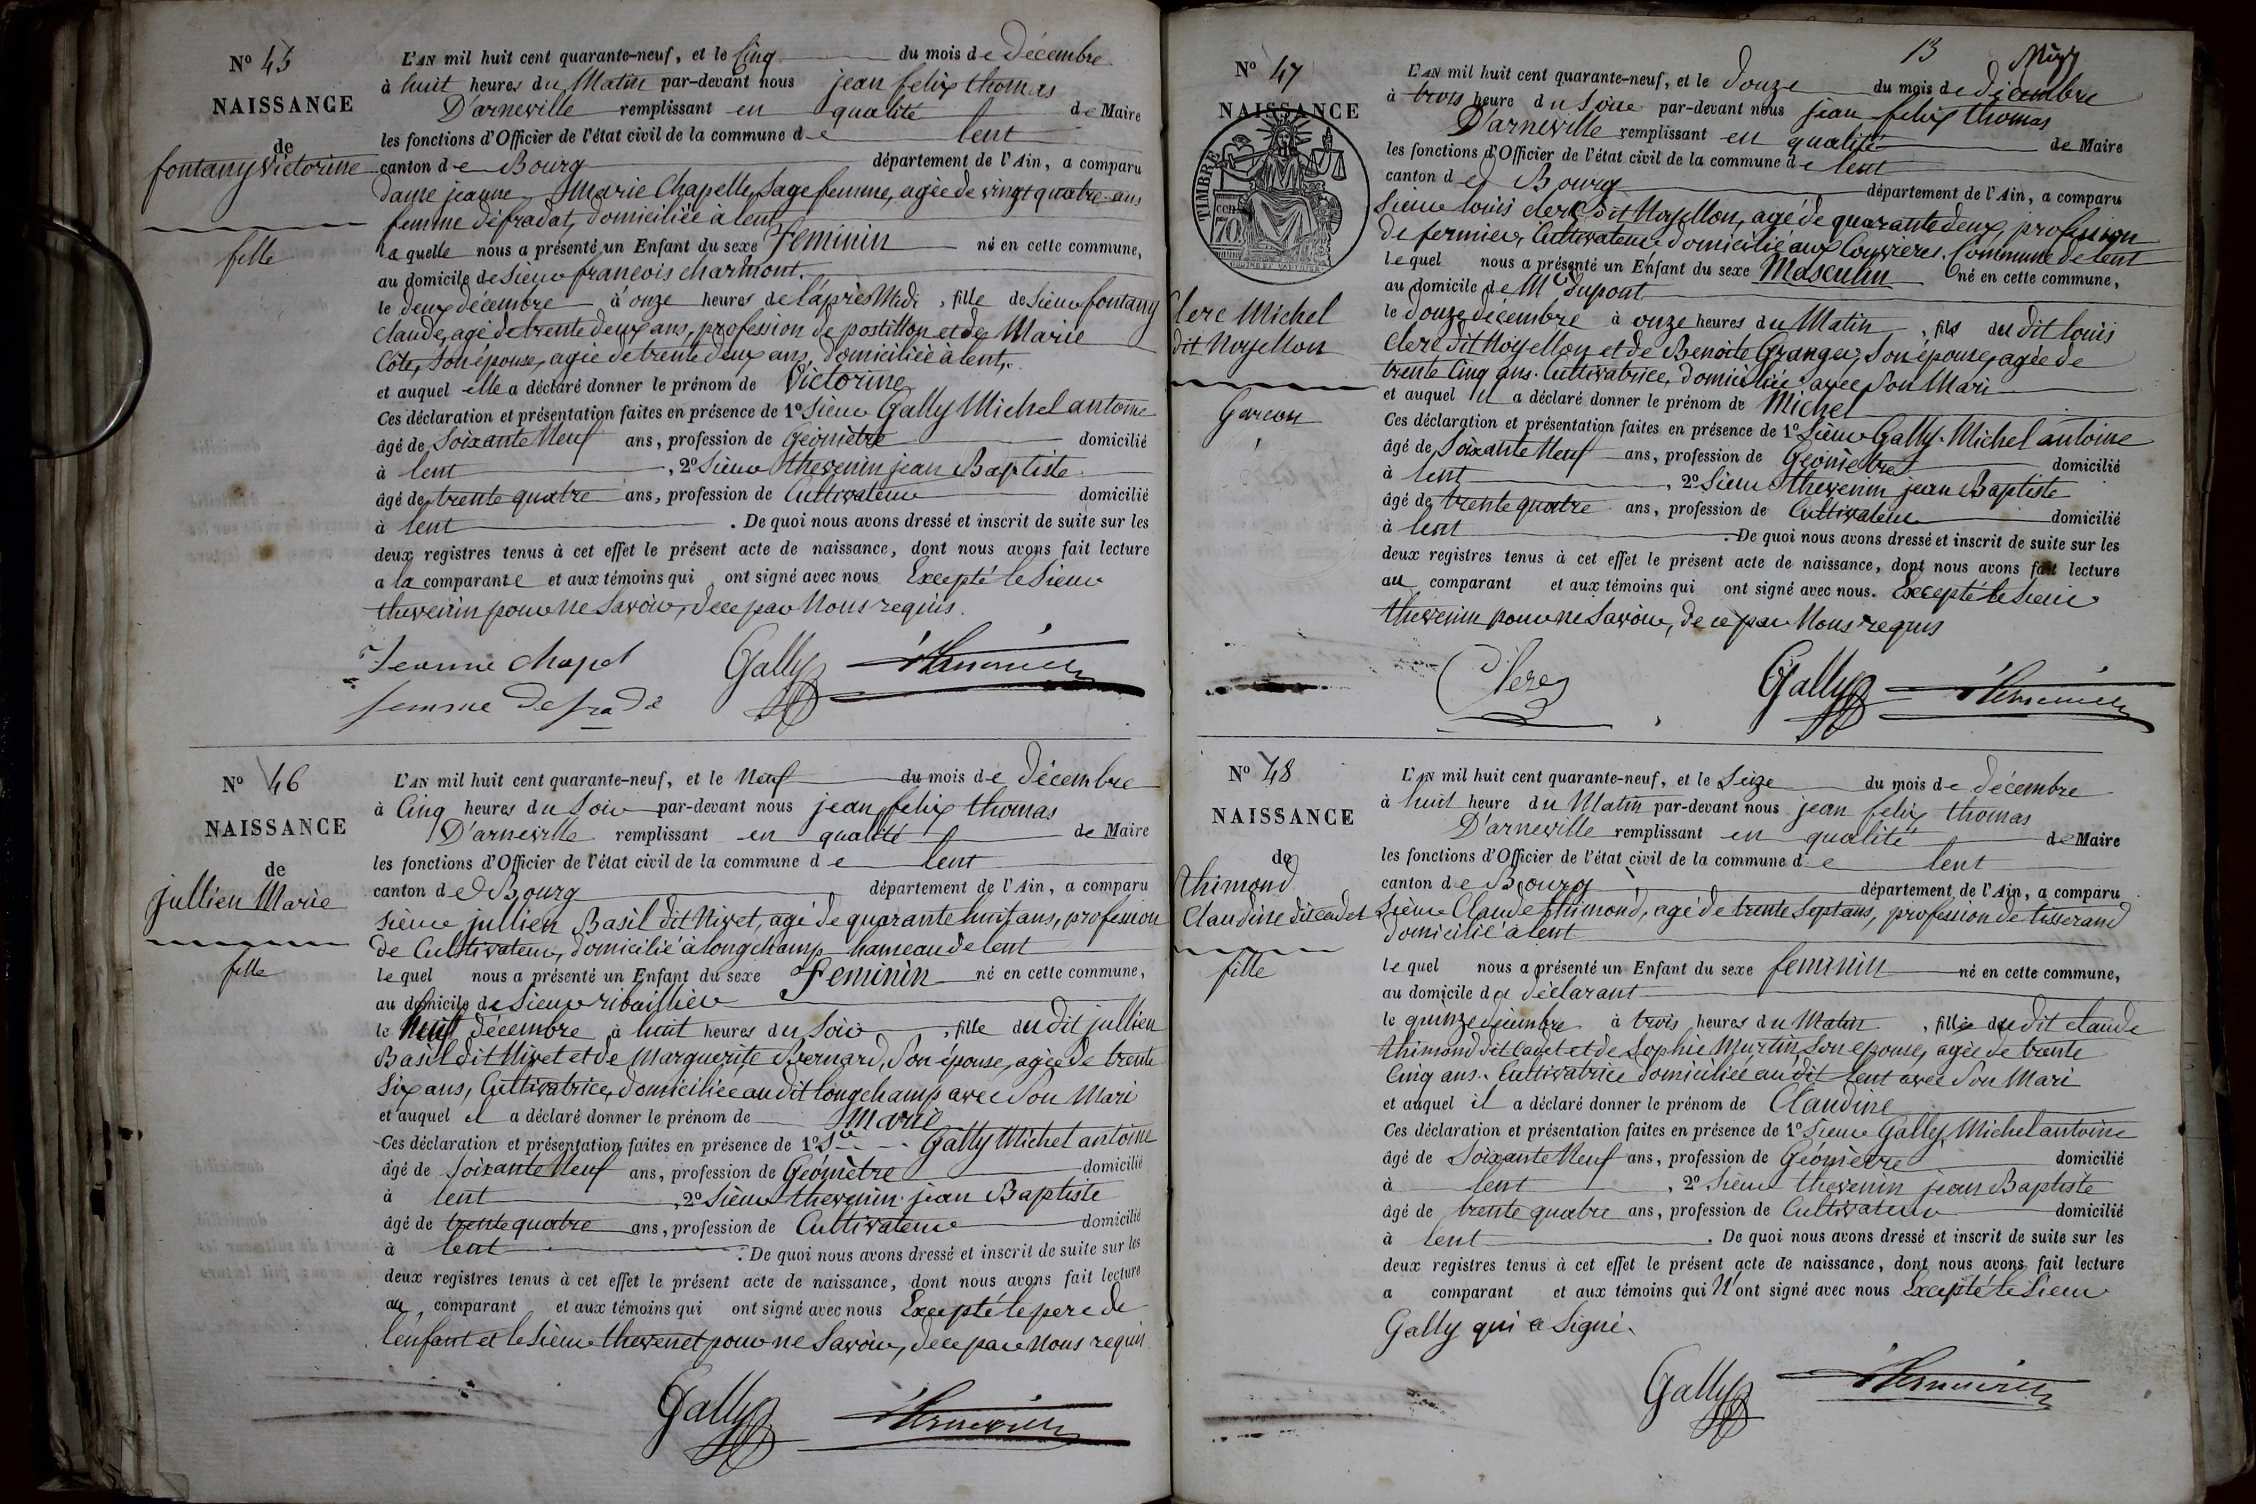 N° 45
NAISSANCE
de
fontany Victorine
fille
L'AN mil huit cent quarante-neuf, et le Cinq du mois de décembre
à huit heures du Matin par-devant nous jean felix thomas
D'arneville remplissant en qualité de Maire
les fonctions d'Officier de l'état civil de la commune de lent
canton de Bourg département de l'Ain, a comparu
dame jeanne Marie Chapelle, Sage femme, agée de vingt quatre ans
femme défradat, domiciliée à lent
la quelle nous a présenté un Enfant du sexe Feminin né en cette commune,
au domicile de sieur francois charmont.
le deux décembre à onze heures de l'après Midi, fille de Sieur fontany
claude, agé de trente deux ans, profession de postillon et de Marie
Côte, Son épouse, agée de trente deux ans, domiciliée à lent,
et auquel elle a déclaré donner le prénom de Victorine
Ces déclaration et présentation faites en présence de 1° Sieur Gally Michel antoine
âgé de Soixante Neuf ans, profession de Géomètre domicilié
à lent, 2° Sieur thevenin jean Baptiste
âgé de trente quatre ans, profession de Cultivateur domicilié
à lent. De quoi nous avons dressé et inscrit de suite sur les
deux registres tenus à cet effet le présent acte de naissance, dont nous avons fait lecture
a la comparante et aux témoins qui ont signé avec nous Excepté le Sieur
thevenin pour ne Savoir, de ce par Nous requis.
Jeanne chapel Gally
femme defrada
N° 46
NAISSANCE
de
jullien Marie
fille
L'AN mil huit cent quarante-neuf, et le Neuf du mois de décembre
à Cinq heures du Soir par-devant nous jean felix thomas
D'arneville remplissant en qualité de Maire
les fonctions d'Officier de l'état civil de la commune de lent
canton de Bourg département de l'Ain, a comparu
Sieur jullien Basil dit Nivet, agé de quarante huit ans, profession
de Cultivateur, domicilié à longchamp hameau de lent
le quel nous a présenté un Enfant du sexe Feminin né en cette commune,
au domicile de Sieur ribaillier
le Neuf décembre à huit heures du Soir, fille du dit jullien
Basil dit Nivet et de Marguerite Bernard, Son épouse, agée de trente
Six ans, Cultivatrice, domiciliée au dit longchamp avec Son Mari
et auquel il a déclaré donner le prénom de Marie
Ces déclaration et présentation faites en présence de 1° Sr Gally Michel antoine
âgé de Soixante Neuf ans, profession de Géomètre domicilié
à lent, 2° Sieur thevenin jean Baptiste
âgé de trente quatre ans, profession de Cultivateur domicilié
à lent. De quoi nous avons dressé et inscrit de suite sur les
deux registres tenus à cet effet le présent acte de naissance, dont nous avons fait lecture
au comparant et aux témoins qui ont signé avec nous Excepté le pere de
l'enfant et le Sieur thevenet pour ne Savoir, de ce par Nous requis
Gally
13
N° 47
NAISSANCE
TIMBRE
70
Clerc Michel
dit Noyellon
Garcon
L'AN mil huit cent quarante-neuf, et le douze du mois de décembre
à trois heure du Soir par-devant nous jean felix thomas
D'arneville remplissant en qualité de Maire
les fonctions d'Officier de l'état civil de la commune de lent
canton de Bourg département de l'Ain, a comparu
Sieur louis clerc dit Noyellon, agé de quarante deux, profession
de fermier, Cultivateur domicilié aux Commune de lent
le quel nous a présenté un Enfant du sexe Masculin né en cette commune,
au domicile de Mr dupont
le douze décembre à onze heures du Matin, fils du dit louis
clerc dit Noyellon et de Benoite Granger, Son épouse, agée de
trente Cinq ans. Cultivatrice, domiciliée avec Son Mari
et auquel il a déclaré donner le prénom de Michel
Ces déclaration et présentation faites en présence de 1° Sieur Gally Michel antoine
âgé de Soixante Neuf ans, profession de Géomètre domicilié
à lent, 2° Sieur thevenin jean Baptiste
âgé de trente quatre ans, profession de Cultivateur domicilié
à lent. De quoi nous avons dressé et inscrit de suite sur les
deux registres tenus à cet effet le présent acte de naissance, dont nous avons fait lecture
au comparant et aux témoins qui ont signé avec nous. Excepté le Sieur
thevenin pour ne Savoir, de ce par Nous requis
Clerc Gally
N° 48
NAISSANCE
de
thimond
Claudine dit cadet
fille
L'AN mil huit cent quarante-neuf, et le Seize du mois de décembre
à huit heure du Matin par-devant nous jean felix thomas
D'arneville remplissant en qualité de Maire
les fonctions d'Officier de l'état civil de la commune de lent
canton de Bourg département de l'Ain, a comparu
Sieur Claude thimond, agé de trente Sept ans, profession de tisserand
domicilié à lent
le quel nous a présenté un Enfant du sexe feminin né en cette commune,
au domicile du déclarant
le quinze décembre à trois heures du Matin, fille du dit claude
thimond dit Cadet et de Sophie Murtin Son épouse, agée de trente
Cinq ans. Cultivatrice domiciliée au dit lent avec Son Mari
et auquel il a déclaré donner le prénom de Claudine
Ces déclaration et présentation faites en présence de 1° Sieur Gally Michel antoine
âgé de Soixante Neuf ans, profession de Géomètre domicilié
à lent, 2° Sieur thevenin jean Baptiste
âgé de trente quatre ans, profession de Cultivateur domicilié
à lent. De quoi nous avons dressé et inscrit de suite sur les
deux registres tenus à cet effet le présent acte de naissance, dont nous avons fait lecture
a comparant et aux témoins qui N'ont signé avec nous Excepté le Sieur
Gally qui a Signé.
Gally